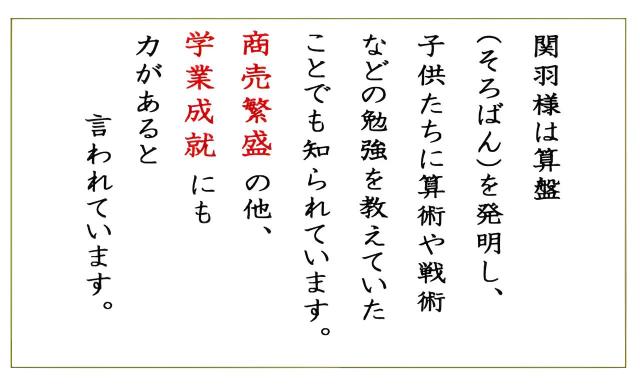 関羽様は算盤
（そろばん）を発明し、
子供たちに算術や戦術
などの勉強を教えていた
ことでも知られています。
商売繁盛の他、
学業成就にも
力があると
言われています。